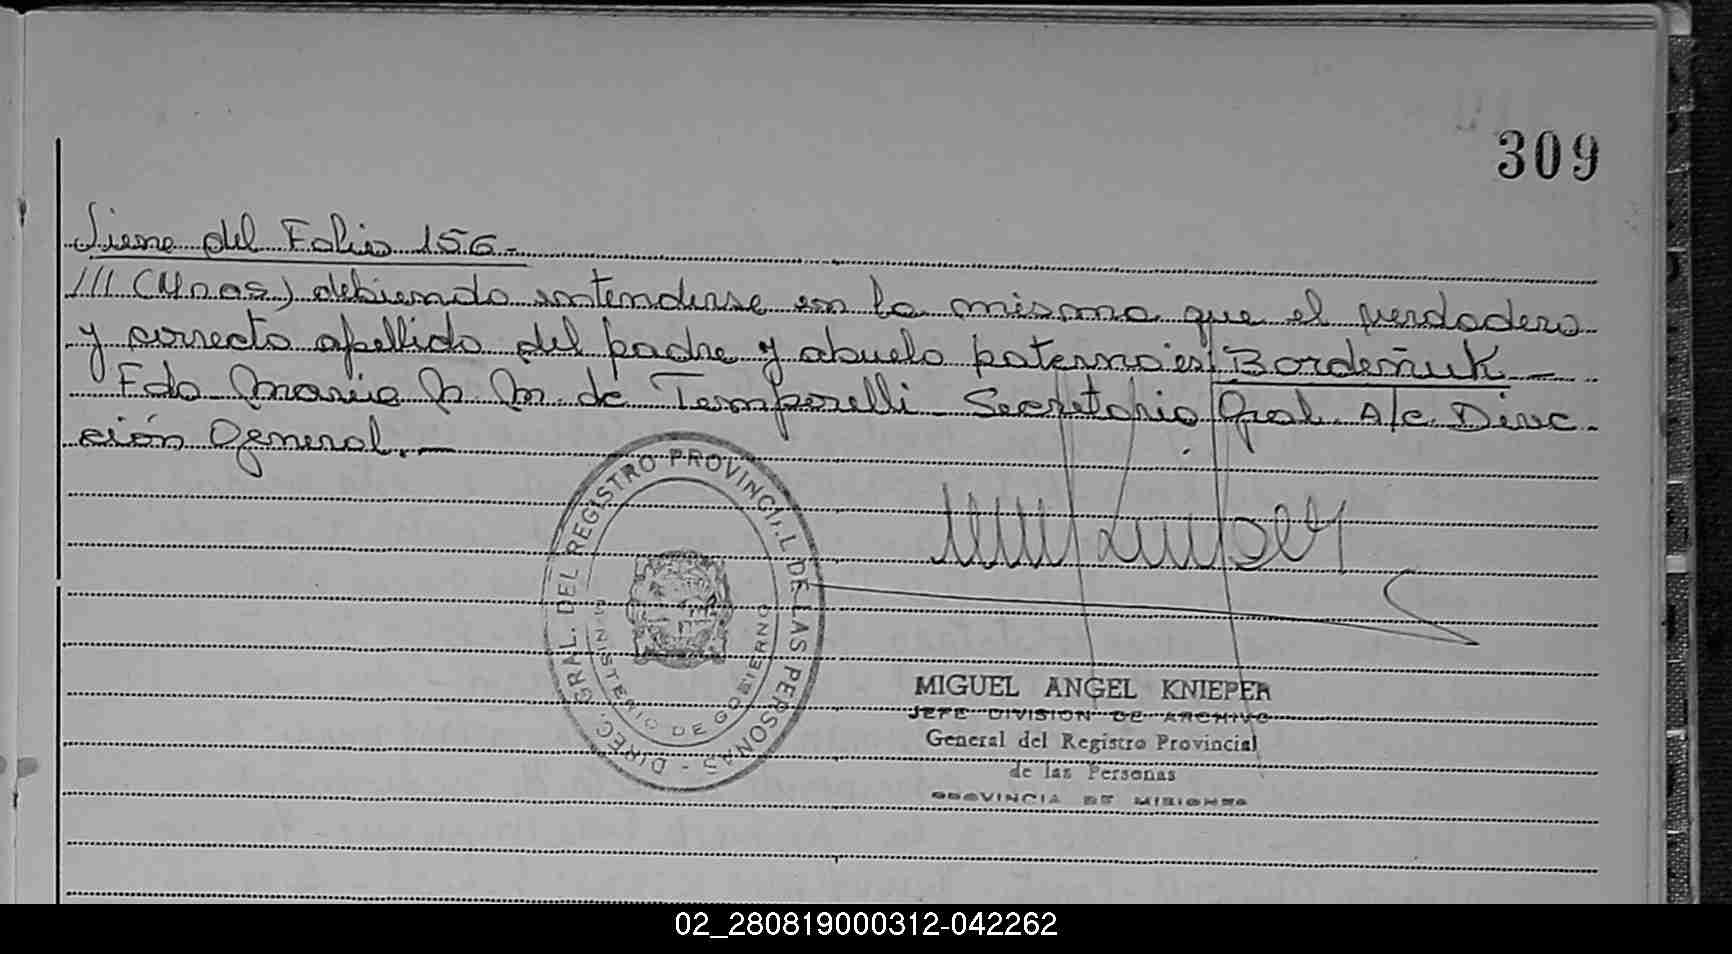 309
Viene del Folio 156.-
/// (Mnes) debiendo entenderse en la misma que el verdadero
y correcto apellido del padre y abuelo paterno es Bordeñuk -
Fdo Maria N. M. de Temporelli - Secretario Gral A/c Direc
ción General. -
DIREC. GRAL. DEL REGISTRO PROVINCIAL DE LAS PERSONAS -
MINISTERIO DE GOBIERNO
MIGUEL ANGEL KNIEPER
JEFE DIVISION DE ARCHIVO
General del Registro Provincial
de las Personas
PROVINCIA DE MISIONES
02_280819000312-042262